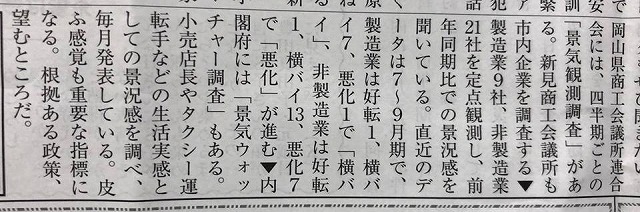 岡山県商工会議所連合
会には、四半期ごとの
「景気観測調査」があ
る。新見商工会議所も
市内企業を調査する▼
製造業9社、非製造業
21社を定点観測し、前
年同期比での景況感を
聞いている。直近のデ
ータは7〜9月期で、
製造業は好転1、横バ
イ7、悪化1で「横バ
イ」、非製造業は好転
1、横バイ13、悪化7
で「悪化」が進む▼内
閣府には「景気ウォッ
チャー調査」もある。
小売店長やタクシー運
転手などの生活実感と
しての景況感を調べ、
毎月発表している。皮
ふ感覚も重要な指標に
なる。根拠ある政策、
望むところだ。